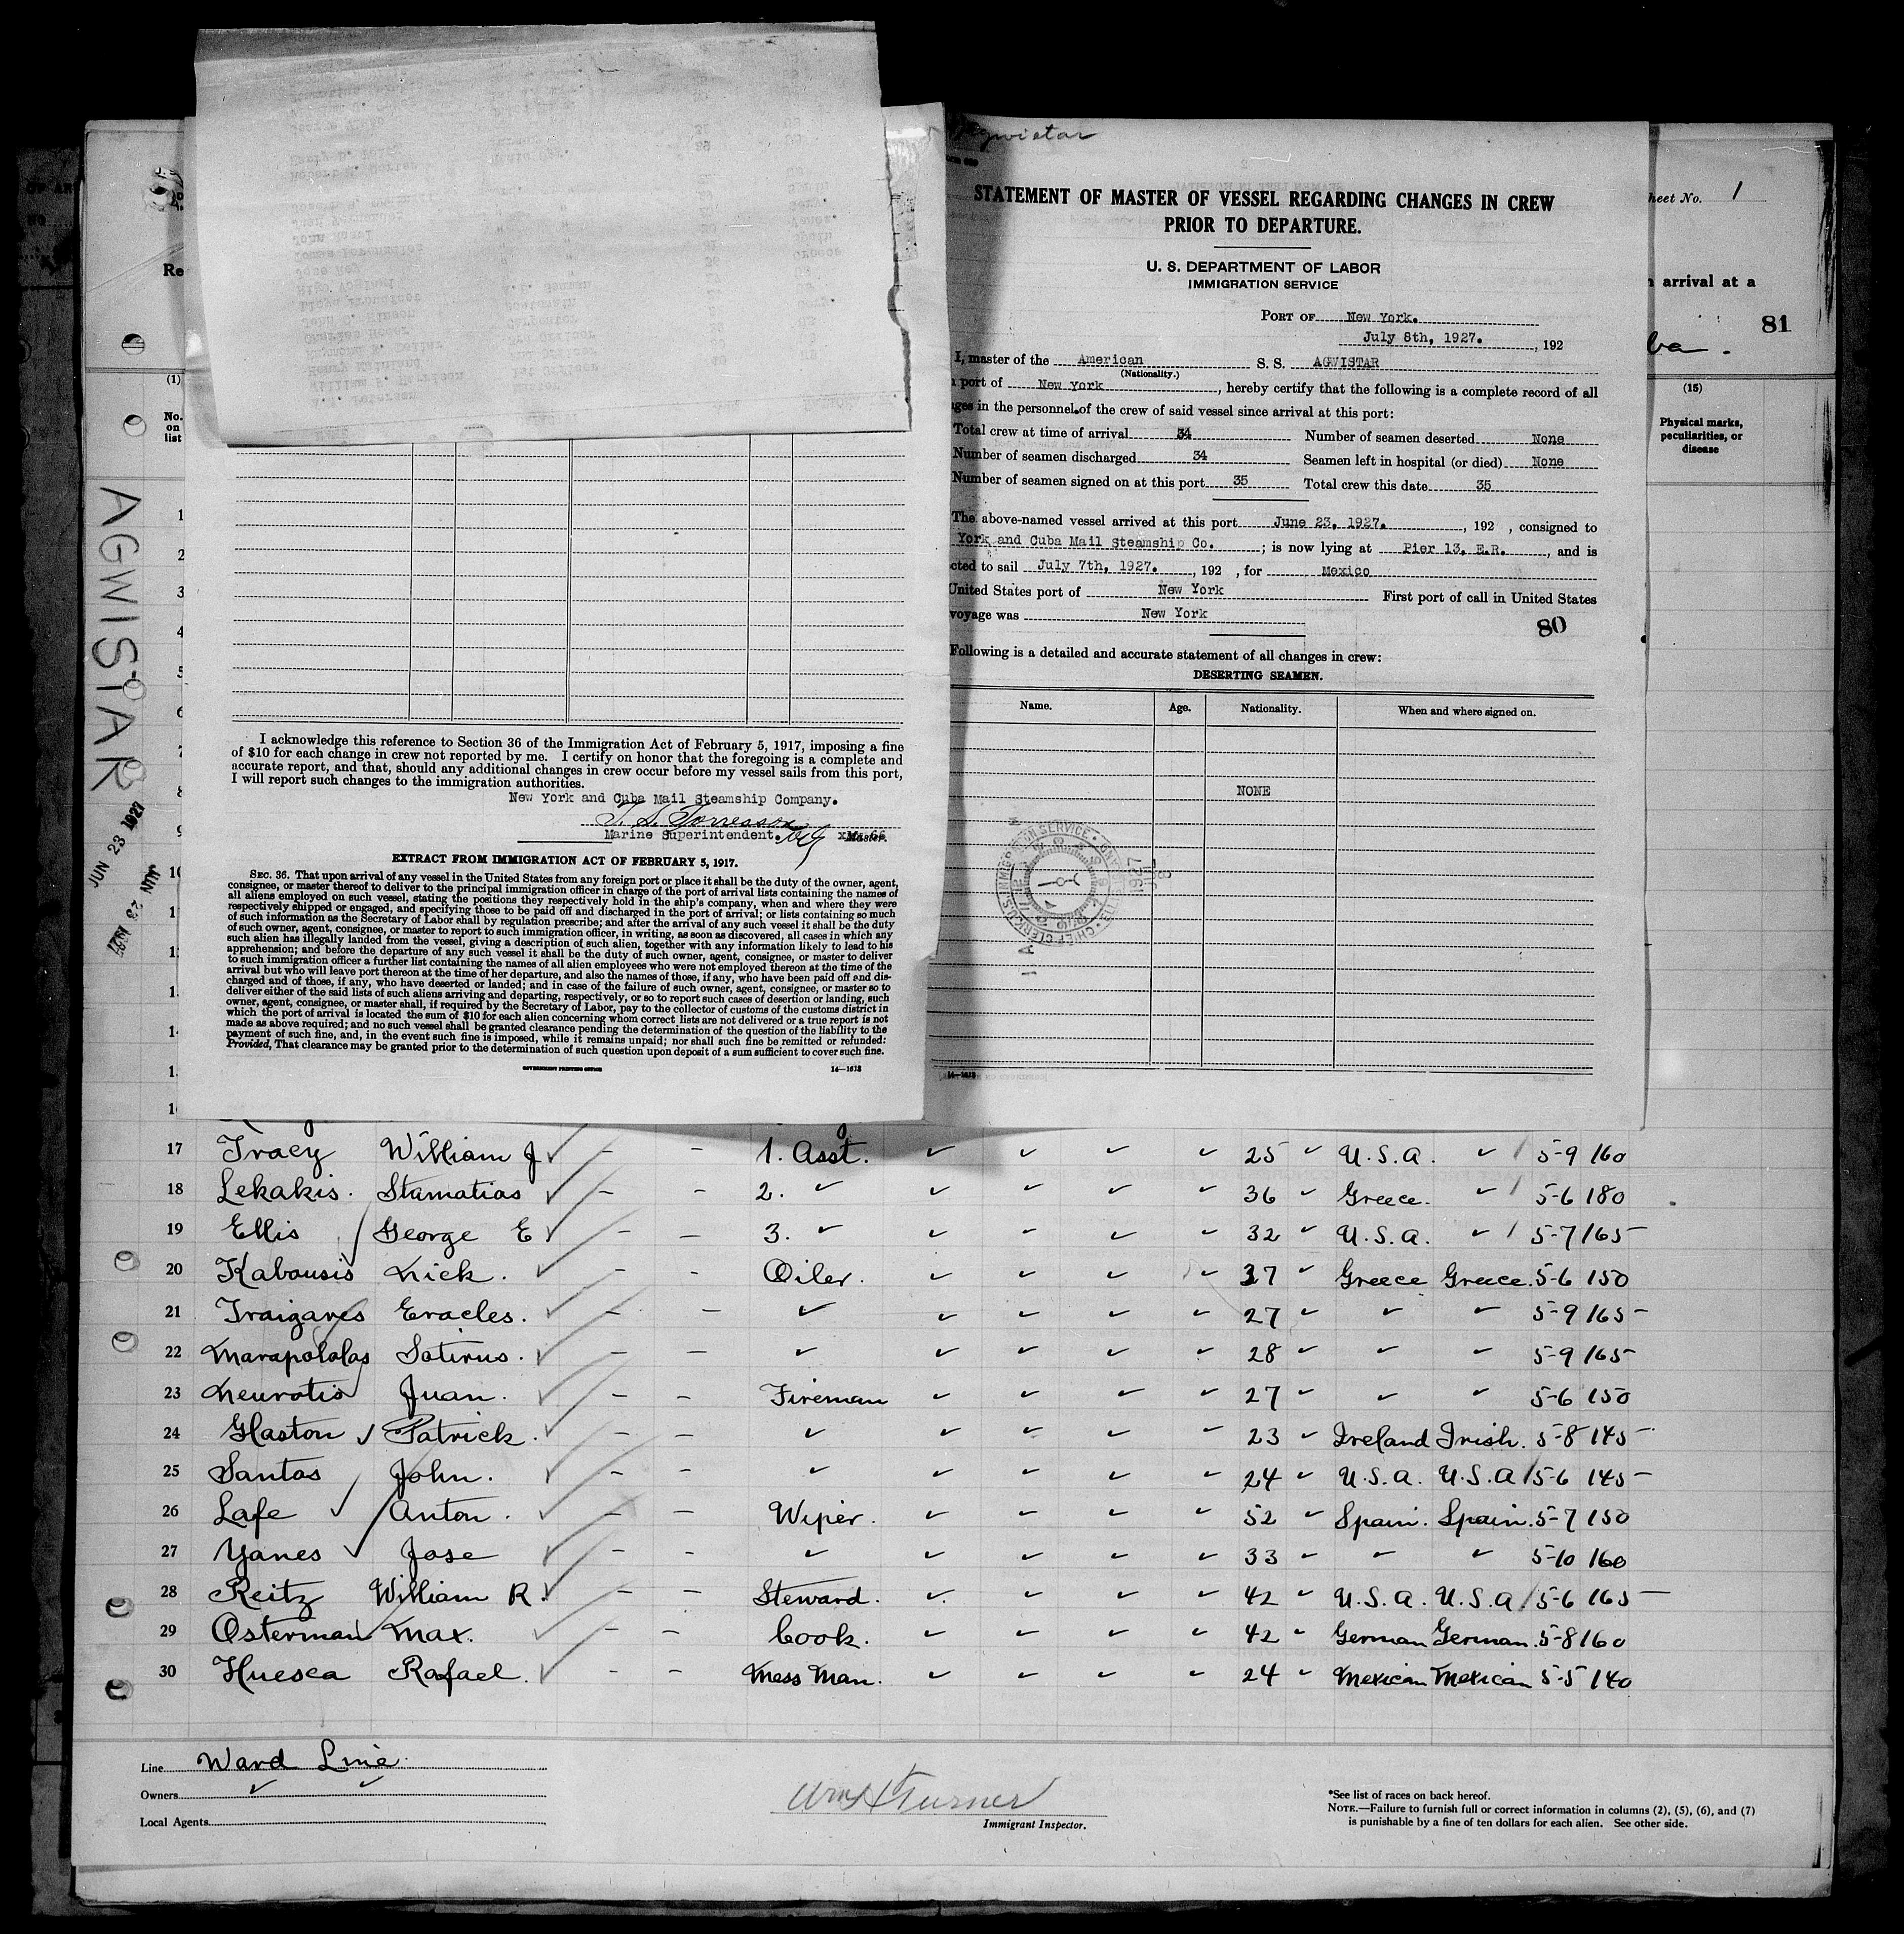 Agwistar
STATEMENT OF MASTER OF VESSEL REGARDING CHANGES IN CREW
PRIOR TO DEPARTURE.
U. S. DEPARTMENT OF LABOR
IMMIGRATION SERVICE
PORT OF New York.
July 8th, 1927. , 192
I, master of the American S. S. AGWISTAR
(Nationality.)
port of New York , hereby certify that the following is a complete record of all
in the personnel of the crew of said vessel since arrival at this port:
Total crew at time of arrival 34 Number of seamen deserted None
Number of seamen discharged 34 Seamen left in hospital (or died) None
Number of seamen signed on at this port 35 Total crew this date 35
The above-named vessel arrived at this port June 23, 1927. , 192 , consigned to
York and Cuba Mail Steamship Co. ; is now lying at Pier 13, E.R. , and is
cted to sail July 7th, 1927. , 192 , for Mexico
United States port of New York First port of call in United States
voyage was New York
80
Following is a detailed and accurate statement of all changes in crew:
DESERTING SEAMEN.
Name. Age. Nationality. When and where signed on.
NONE
14—1612
heet No. 1
arrival at a
81
ba.
(15)
Physical marks, peculiarities, or disease
Re
(1)
No. on list
AGWISTAR
JUN 23 1927
JUN 28 1927
I acknowledge this reference to Section 36 of the Immigration Act of February 5, 1917, imposing a fine
of $10 for each change in crew not reported by me. I certify on honor that the foregoing is a complete and
accurate report, and that, should any additional changes in crew occur before my vessel sails from this port,
I will report such changes to the immigration authorities.
New York and Cuba Mail Steamship Company.
Marine Superintendent. Master.
EXTRACT FROM IMMIGRATION ACT OF FEBRUARY 5, 1917.
SEC. 36. That upon arrival of any vessel in the United States from any foreign port or place it shall be the duty of the owner, agent,
consignee, or master thereof to deliver to the principal immigration officer in charge of the port of arrival lists containing the names of
all aliens employed on such vessel, stating the positions they respectively hold in the ship's company, when and where they were
respectively shipped or engaged, and specifying those to be paid off and discharged in the port of arrival; or lists containing so much
of such information as the Secretary of Labor shall by regulation prescribe; and after the arrival of any such vessel it shall be the duty
of such owner, agent, consignee, or master to report to such immigration officer, in writing, as soon as discovered, all cases in which any
such alien has illegally landed from the vessel, giving a description of such alien, together with any information likely to lead to his
apprehension; and before the departure of any such vessel it shall be the duty of such owner, agent, consignee, or master to deliver
to such immigration officer a further list containing the names of all alien employees who were not employed thereon at the time of the
arrival but who will leave port thereon at the time of her departure, and also the names of those, if any, who have been paid off and dis-
charged and of those, if any, who have deserted or landed; and in case of the failure of such owner, agent, consignee, or master so to
deliver either of the said lists of such aliens arriving and departing, respectively, or so to report such cases of desertion or landing, such
owner, agent, consignee, or master shall, if required by the Secretary of Labor, pay to the collector of customs of the customs district in
which the port of arrival is located the sum of $10 for each alien concerning whom correct lists are not delivered or a true report is not
made as above required; and no such vessel shall be granted clearance pending the determination of the question of the liability to the
payment of such fine, and, in the event such fine is imposed, while it remains unpaid; nor shall such fine be remitted or refunded:
Provided, That clearance may be granted prior to the determination of such question upon deposit of a sum sufficient to cover such fine.
GOVERNMENT PRINTING OFFICE 14—1612
1
2
3
4
5
6
7
8
9
10
17 Tracy William J 1. Asst. 25 U.S.A. 5-9 160
18 Lekakis. Stamatias 2. 36 Greece. 5-6 180
19 Ellis George E 3. 32 U.S.A. 5-7 165
20 Kabousis Nick. Oiler. 37 Greece Greece. 5-6 150
21 Traigares Eracles. 27 5-9 165
22 Marapololas Sotirus. 28 5-9 165
23 Neurotis Juan. Fireman 27 5-6 150
24 Glaston Patrick. 23 Ireland Irish. 5-8 145
25 Santos John. 24 U.S.A. U.S.A 5-6 145
26 Lafe Anton. Wiper. 52 Spain. Spain. 5-7 150
27 Yanes Jose 33 5-10 160
28 Reitz William R. Steward. 42 U.S.A. U.S.A 5-6 165
29 Osterman Max. Cook. 42 German German. 5-8 160
30 Huesca Rafael. Mess Man. 24 Mexican Mexican 5-5 140
Line Ward Line.
Owners
Local Agents
Wm H Turner
Immigrant Inspector.
*See list of races on back hereof.
NOTE.—Failure to furnish full or correct information in columns (2), (5), (6), and (7)
is punishable by a fine of ten dollars for each alien. See other side.